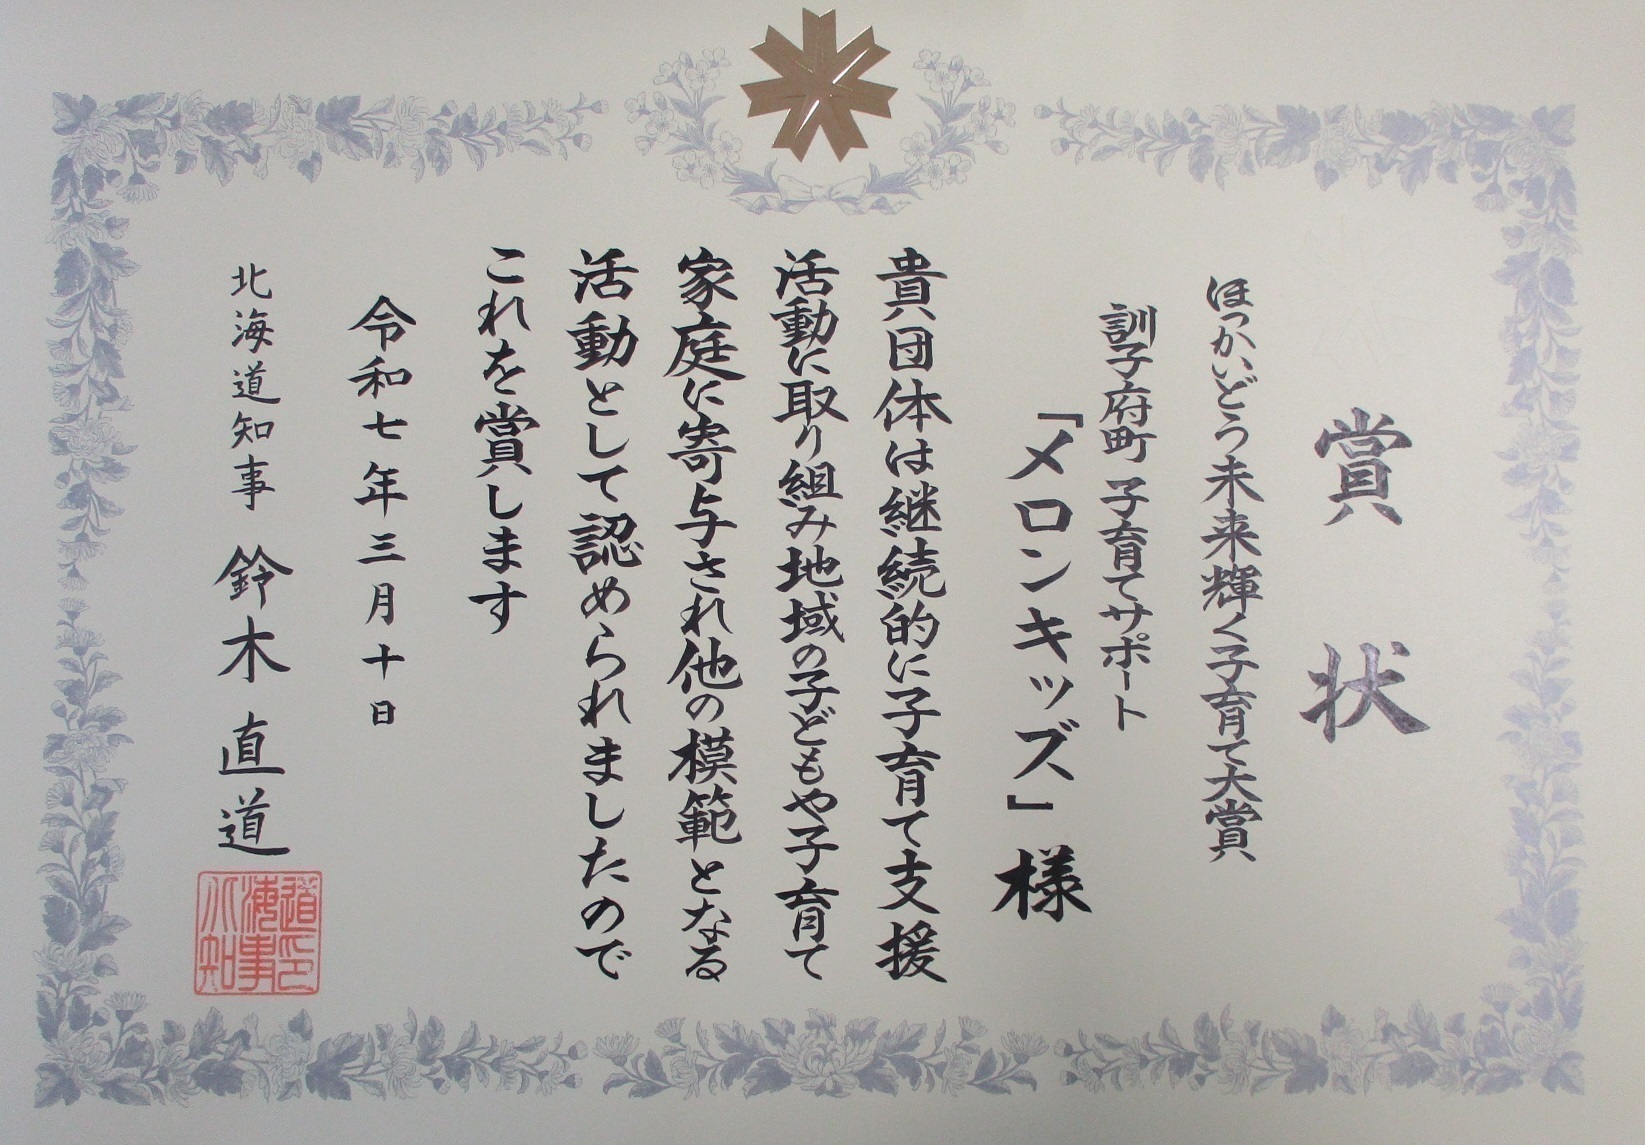 賞状
ほっかいどう未来輝く子育て大賞
訓子府町 子育てサポート
「メロンキッズ」様
貴団体は継続的に子育て支援
活動に取り組み地域の子どもや子育て
家庭に寄与され他の模範となる
活動として認められましたので
これを賞します
令和七年三月十日
北海道知事 鈴木直道
北海道知事印